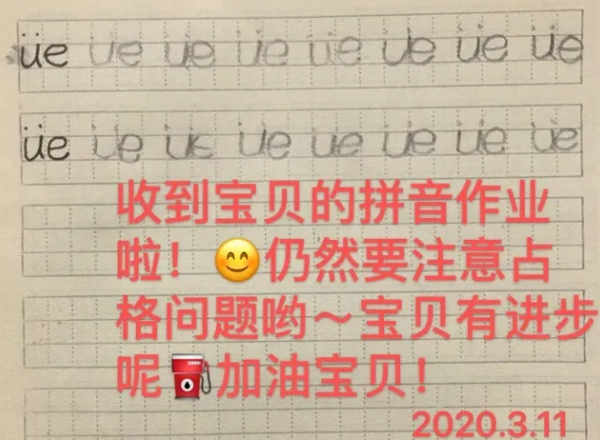 üe üe üe üe üe üe üe üe
üe üe üe üe üe üe üe üe
收到宝贝的拼音作业
啦！😊仍然要注意占
格问题哟～宝贝有进步
呢⛽加油宝贝！
2020.3.11